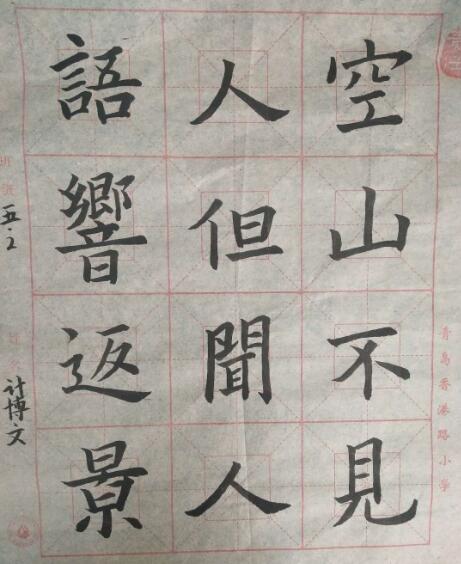 空山不見
人但聞人
語響返景
青島香港路小學
五.2
计博文